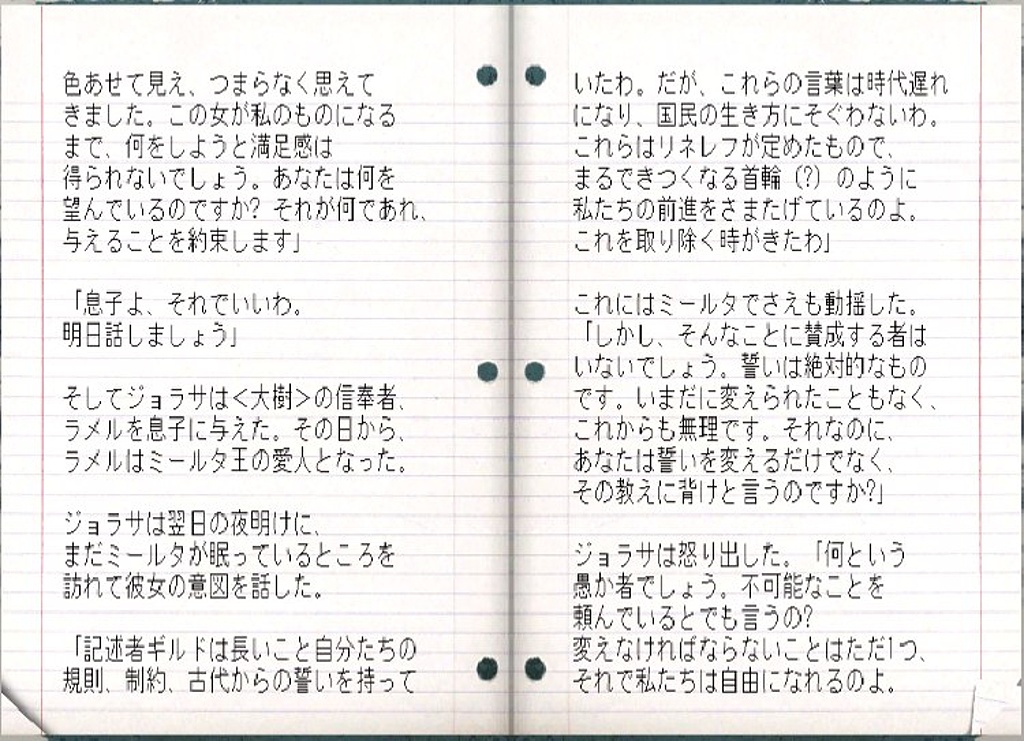 色あせて見え、つまらなく思えて
きました。この女が私のものになる
まで、何をしようと満足感は
得られないでしょう。あなたは何を
望んでいるのですか? それが何であれ、
与えることを約束します」
「息子よ、それでいいわ。
明日話しましょう」
そしてジョラサは<大樹>の信奉者、
ラメルを息子に与えた。その日から、
ラメルはミールタ王の愛人となった。
ジョラサは翌日の夜明けに、
まだミールタが眠っているところを
訪れて彼女の意図を話した。
「記述者ギルドは長いこと自分たちの
規則、制約、古代からの誓いを持って
いたわ。だが、これらの言葉は時代遅れ
になり、国民の生き方にそぐわないわ。
これらはリネレフが定めたもので、
まるできつくなる首輪（?）のように
私たちの前進をさまたげているのよ。
これを取り除く時がきたわ」
これにはミールタでさえも動揺した。
「しかし、そんなことに賛成する者は
いないでしょう。誓いは絶対的なもの
です。いまだに変えられたこともなく、
これからも無理です。それなのに、
あなたは誓いを変えるだけでなく、
その教えに背けと言うのですか?」
ジョラサは怒り出した。「何という
愚か者でしょう。不可能なことを
頼んでいるとでも言うの?
変えなければならないことはただ1つ、
それで私たちは自由になれるのよ。